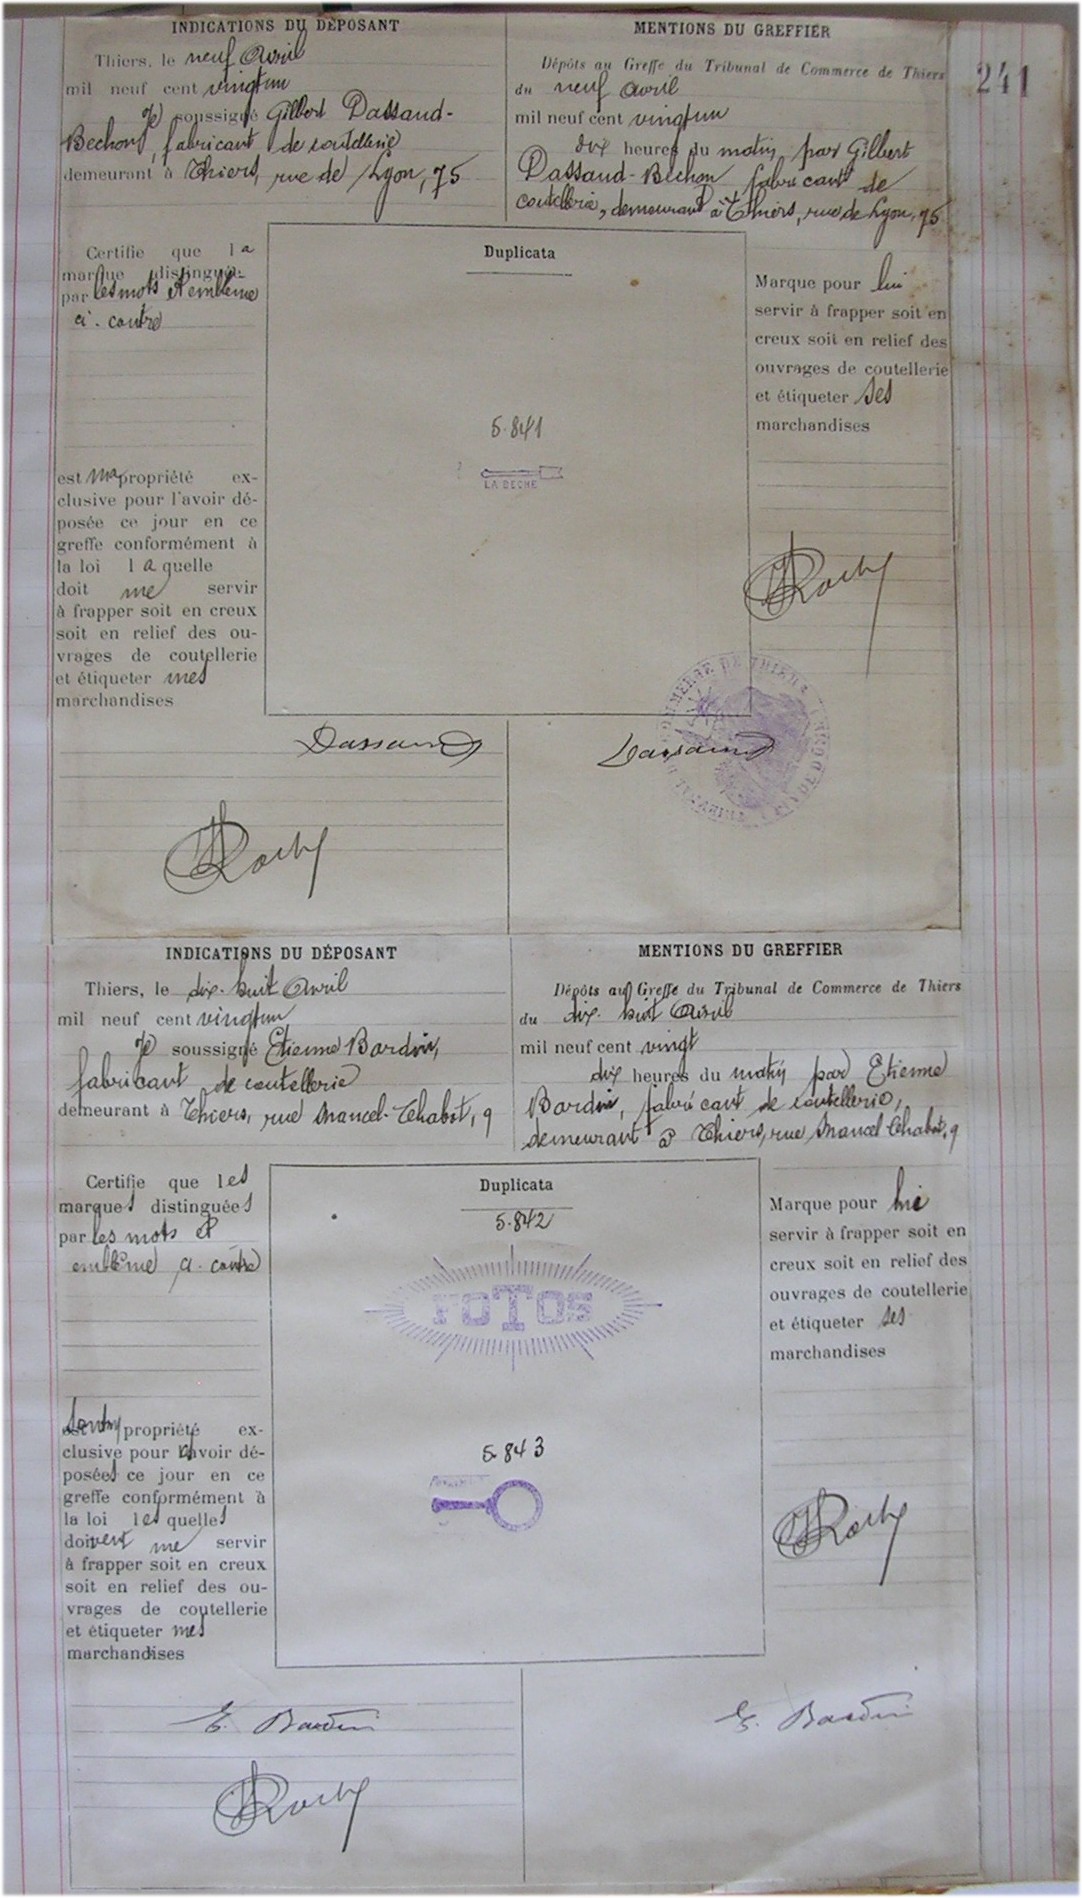 241
INDICATIONS DU DÉPOSANT
Thiers, le neuf Avril
mil neuf cent vingt un
Je soussigné Gilbert Dassaud-
Bechon, fabricant de coutellerie
demeurant à Thiers, rue de Lyon, 75
MENTIONS DU GREFFIER
Dépôts au Greffe du Tribunal de Commerce de Thiers
du neuf avril
mil neuf cent vingt un
dix heures du matin, par Gilbert
Dassaud-Bechon fabricant de
coutellerie, demeurant à Thiers, rue de Lyon, 75
Certifie que la
marque distinguée
par les mots et emblème
ci-contre
est ma propriété ex-
clusive pour l'avoir dé-
posée ce jour en ce
greffe conformément à
la loi laquelle
doit me servir
à frapper soit en creux
soit en relief des ou-
vrages de coutellerie
et étiqueter mes
marchandises
Duplicata
5.841
LA BECHE
Marque pour lui
servir à frapper soit en
creux soit en relief des
ouvrages de coutellerie
et étiqueter ses
marchandises
COMMERCE DE THIERS
Dassaud
Dassaud
INDICATIONS DU DÉPOSANT
Thiers, le dix-huit Avril
mil neuf cent vingt un
Je soussigné Etienne Bardin,
fabricant de coutellerie
demeurant à Thiers, rue Mancel-Chabot, 9
MENTIONS DU GREFFIER
Dépôts au Greffe du Tribunal de Commerce de Thiers
du dix-huit Avril
mil neuf cent vingt
dix heures du matin par Etienne
Bardin, fabricant de coutellerie,
demeurant à Thiers, rue Mancel Chabot, 9
Certifie que les
marques distinguées
par les mots et
emblème ci-contre
propriété ex-
clusive pour l'avoir dé-
posées ce jour en ce
greffe conformément à
la loi lesquelles
doivent me servir
à frapper soit en creux
soit en relief des ou-
vrages de coutellerie
et étiqueter mes
marchandises
Duplicata
5.842
FOTOS
5.843
Marque pour lui
servir à frapper soit en
creux soit en relief des
ouvrages de coutellerie
et étiqueter ses
marchandises
E. Bardin
E. Bardin